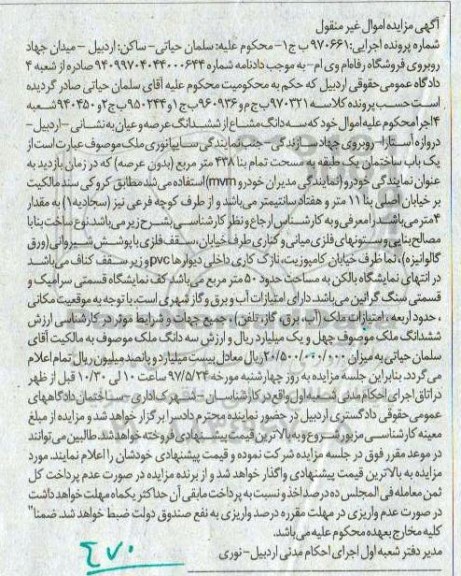 آگهی مزایده اموال غیر منقول
شماره پرونده اجرایی: ۹۷۰۶۶۱ ب ج۱- محکوم علیه: سلمان حیاتی- ساکن: اردبیل - میدان جهاد
روبروی فروشگاه رفاه ام وی ام- به موجب دادنامه شماره ۹۴۰۹۹۷۰۴۰۴۴۰۰۰۶۴۴ صادره از شعبه ۴
دادگاه عمومی حقوقی اردبیل که حکم به محکومیت محکوم علیه آقای سلمان حیاتی صادر گردیده
است حسب پرونده کلاسه ۹۷۰۳۲۱ ب ج م و ۹۶۰۹۳۶ ب ج ۱ و ۹۵۰۲۴۴ ب ج ۲ و ۹۴۰۴۵۰ شعبه
۴ اجرا محکوم علیه اموال خود که سه دانگ مشاع از ششدانگ عرصه و عیان به نشانی -اردبیل-
دروازه آستارا- روبروی جهاد سازندگی- جنب نمایندگی سایپا توزی ملک موصوف عبارت است از
یک باب ساختمان یک طبقه به مساحت تمام بنا ۴۳۸ متر مربع (بدون عرصه) که در زمان بازدید به
عنوان نمایندگی خودرو (نمایندگی مدیران خودرو mvm) استفاده می شد مطابق کروکی سند مالکیت
بر خیابان اصلی بنا ۱۱ متر و هفتاد سانتیمتر می باشد و از طرف کوچه فرعی نیز (سجادیه۱) به مقدار
۴ متر می باشد، در امعرفی و به کارشناس ارجاع و نظر کارشناسی بشرح زیر می باشد: نوع ساخت بنا با
مصالح بنایی و ستونهای فلزی میانی و کناری طرف خیابان، سقف فلزی با پوشش شیروانی (ورق
گالوانیزه)، نما طرف خیابان کامپوزیت، نازک کاری داخلی دیوارها pvc و زیر سقف کناف می باشد
در انتهای نمایشگاه بالکن به مساحت حدود ۵۰ متر مربع می باشد کف نمایشگاه قسمتی سرامیک و
قسمتی سنگ گرانیت می باشد. دارای امتیازات آب و برق و گاز شهری است. با توجه به موقعیت مکانی
، حدود اربعه، امتیازات ملک (آب، برق، گاز، تلفن)، جمیع جهات و شرایط موثر در کارشناسی ارزش
ششدانگ ملک موصوف چهل و یک میلیارد ریال و ارزش سه دانگ ملک موصوف به مالکیت آقای
سلمان حیاتی به میزان ۲۰/۵۰۰/۰۰۰/۰۰۰ ریال معادل بیست میلیارد و پانصد میلیون ریال تمام اعلام
می گردد. بنابراین جلسه مزایده به روز چهارشنبه مورخه ۹۷/۵/۲۴ ساعت ۱۰ الی ۱۰/۳۰ قبل از ظهر
در اتاق اجرای احکام مدنی شعبه اول واقع در کارشناسان - شهرک اداری- ساختمان دادگاههای
عمومی حقوقی دادگستری اردبیل در حضور نماینده محترم دادسرا برگزار خواهد شد و مزایده از مبلغ
معینه کارشناسی مزبور شروع و به بالاترین قیمت پیشنهادی فروخته خواهد شد. طالبین می توانند
در موعد مقرر فوق در جلسه مزایده شرکت نموده و قیمت پیشنهادی خودشان را اعلام نمایند. مورد
مزایده به بالاترین قیمت پیشنهادی واگذار خواهد شد و از برنده مزایده در صورت عدم پرداخت کل
ثمن معامله فی المجلس ده درصد اخذ و نسبت به پرداخت مابقی آن حداکثر یکماه مهلت خواهد داشت
در صورت عدم واریزی در مهلت مقرره درصد واریزی به نفع صندوق دولت ضبط خواهد شد. ضمنا"
کلیه مخارج بعهده محکوم علیه می باشد.
مدیر دفتر شعبه اول اجرای احکام مدنی اردبیل- نوری
۴۷۰